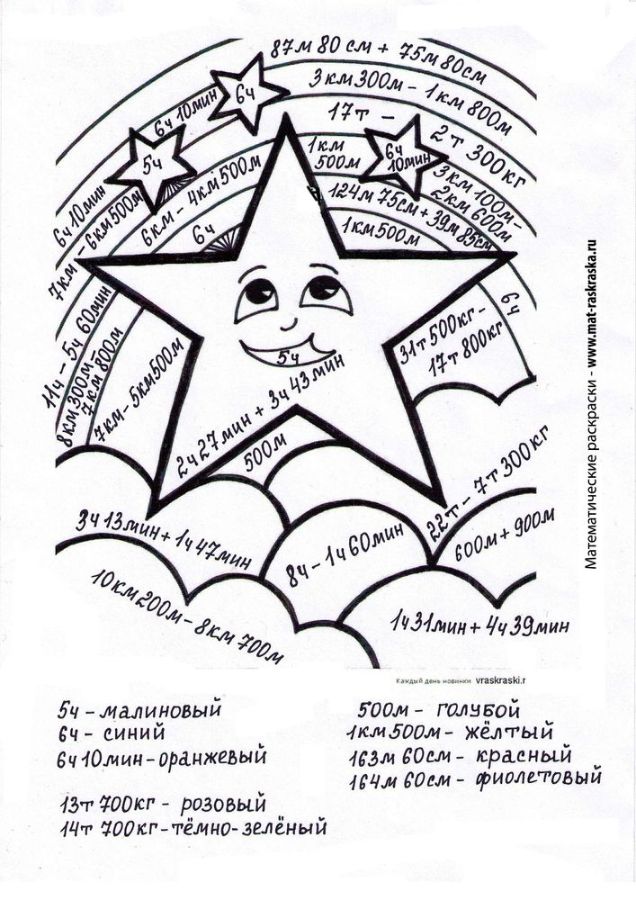 87м 80 см + 75м 80см
3 км 300м - 1 км 800м
17т - 2т 300кг
6ч
6ч 10мин
5ч
6ч 10мин
1км 500м
3км 100м - 2км 600м
124м 75см + 39м 85см
1км 500м
6ч 10мин
7км - 6км 500м
6км - 4км 500м
6ч
11ч - 5ч 60мин
8км 300м - 7км 800м
7км - 5км 500м
5ч
2ч 27мин + 3ч 43мин
31т 500кг - 17т 800кг
6ч
500м
22т - 7т 300кг
3ч 13мин + 1ч 47мин
8ч - 1ч 60мин
600м + 900м
10км 200м - 8км 700м
1ч 31мин + 4ч 39мин
Математические раскраски - www.mat-raskraska.ru
Каждый день новинки vraskraski.r
5ч - малиновый
6ч - синий
6ч 10мин - оранжевый
13т 700кг - розовый
14т 700кг - тёмно-зелёный
500м - голубой
1км 500м - жёлтый
163м 60см - красный
164м 60см - фиолетовый